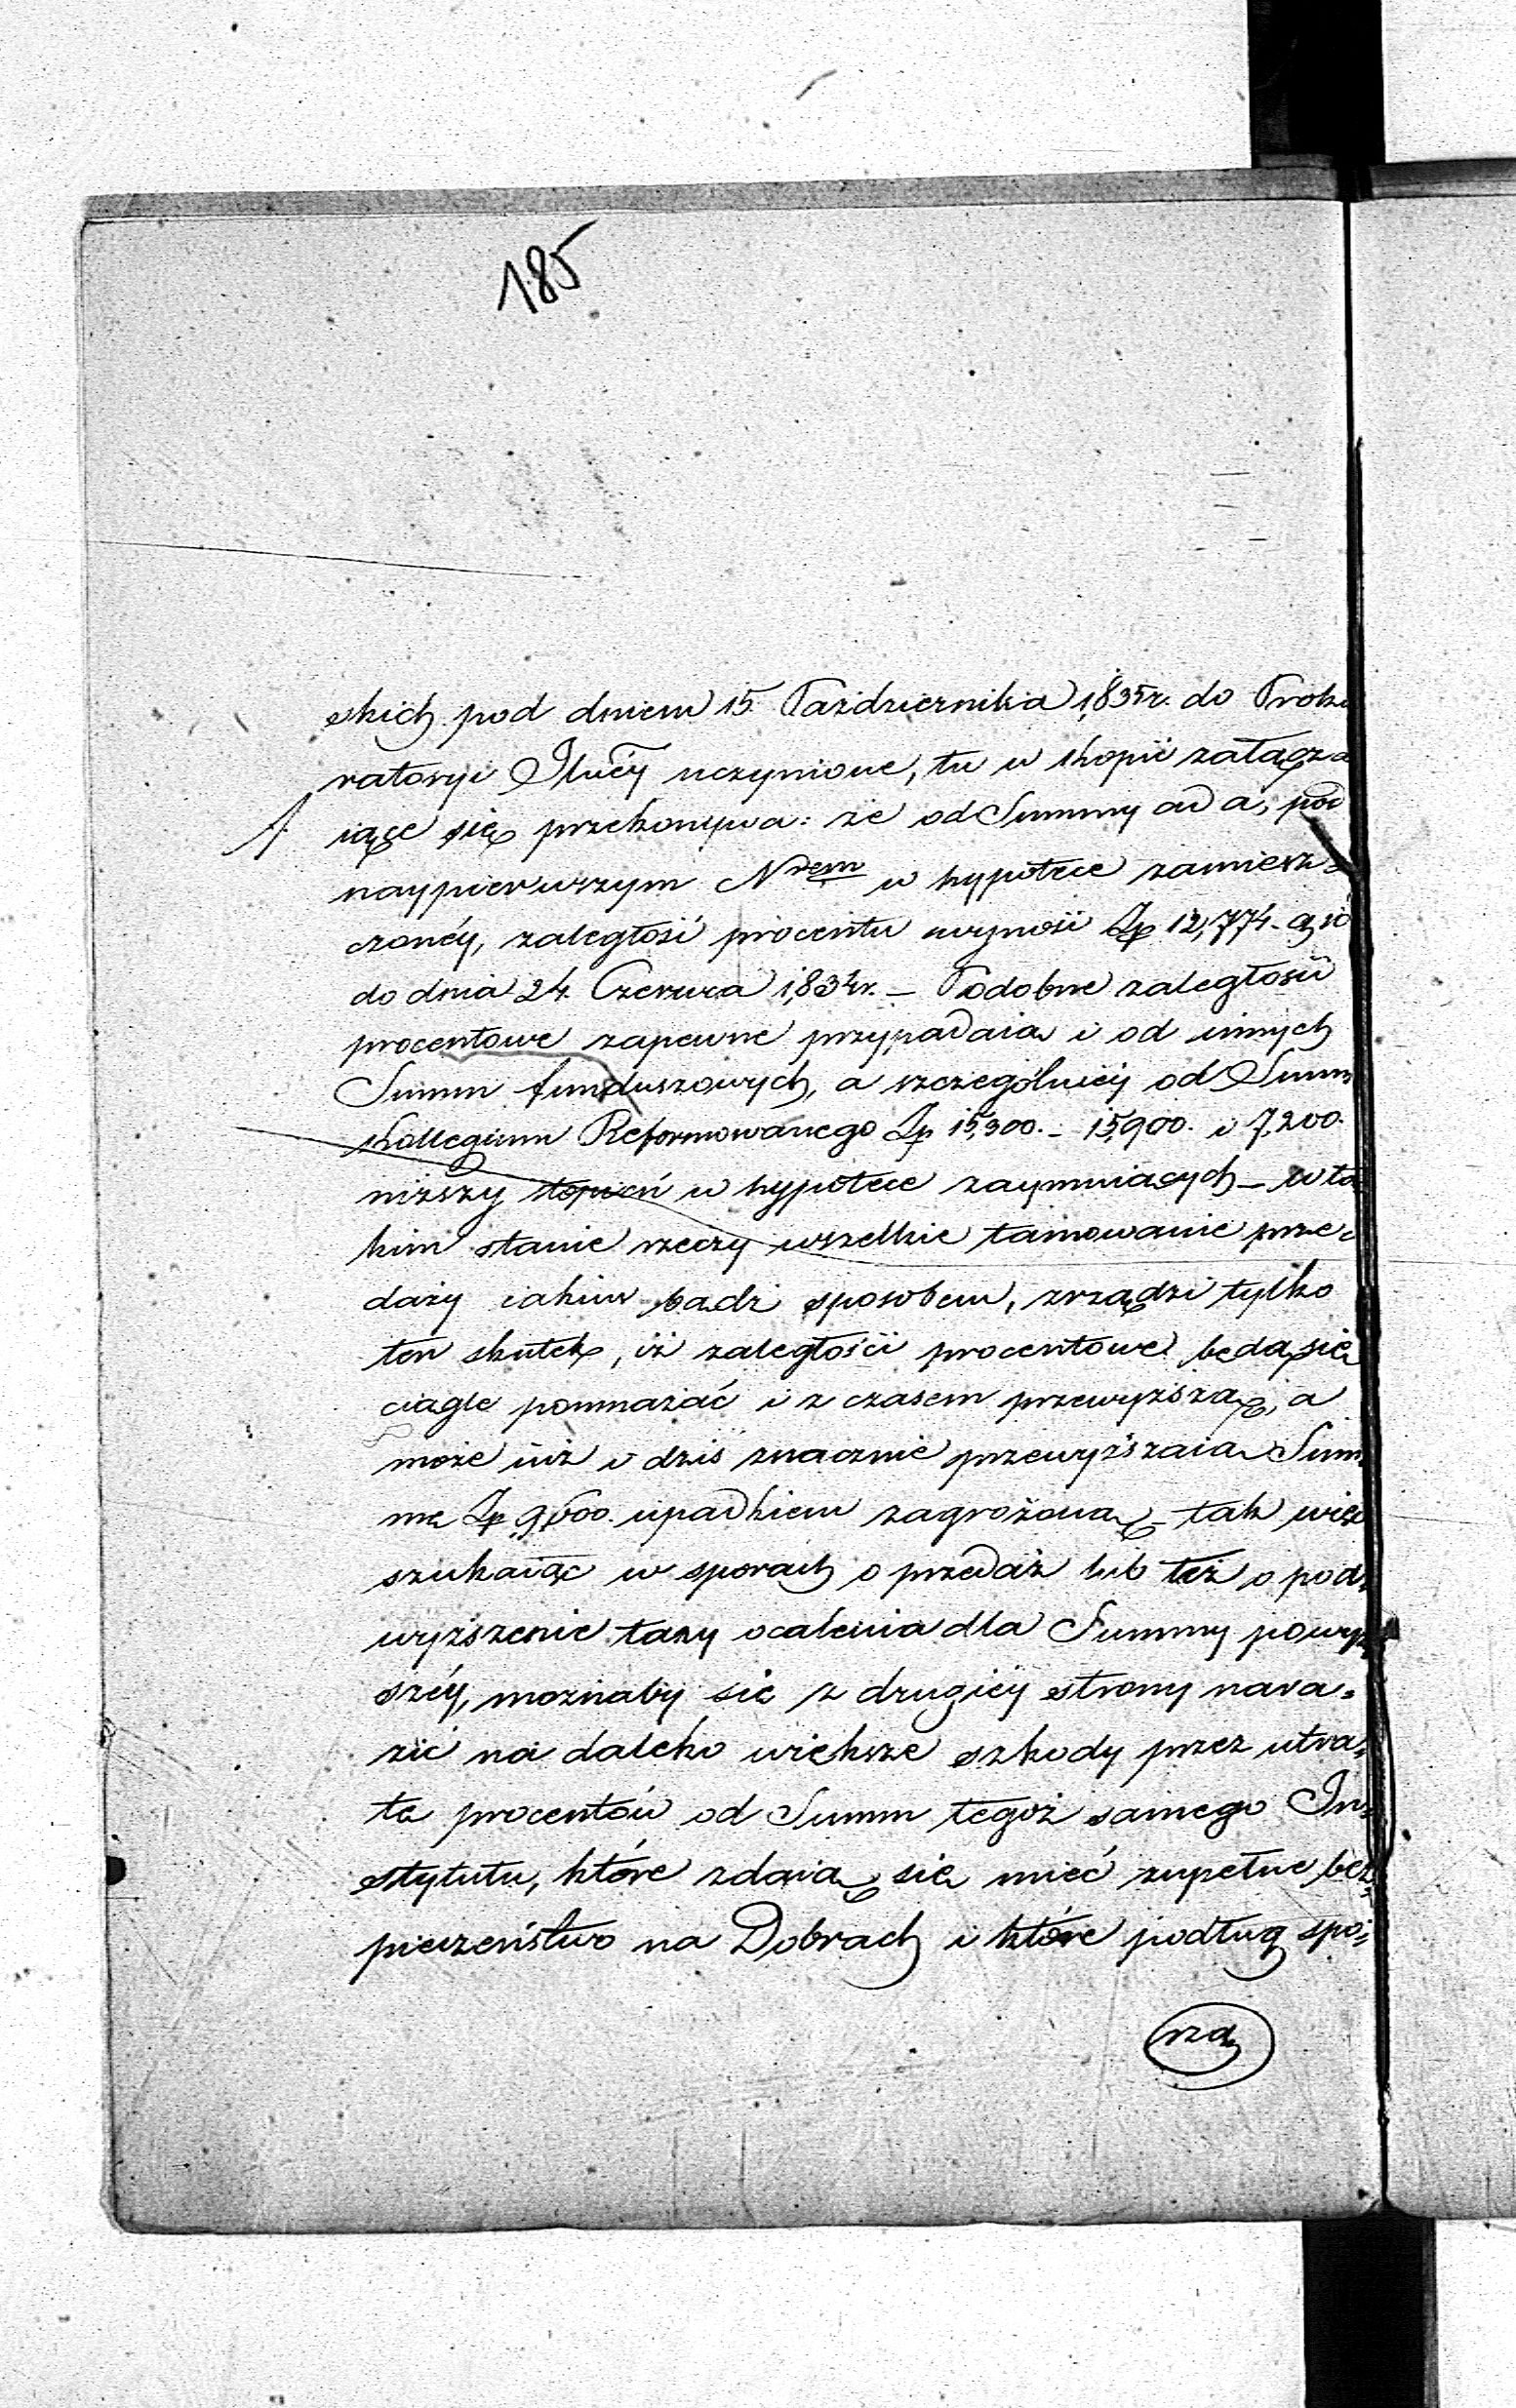 185
skich pod dniem 15 Października 1835r. do Proku
ratoryi Jlnéy uczynione, tu w kopii załącza
A. iące się przekonywa: że od Summy ad a, pod
naypierwszym Nrem w hypotece zamiesz=
czonéy, zaległość procentu wynosi Zp 12,774. gr
do dnia 24. Czerwca 1834r. – Podobne zaległości
procentowe zapewne przypadaią i od innych
Summ funduszowych, a szczególniéy od Summ
Kollegium Reformowanego Zp 15,300. – 15,900. i 7,200.
niższy stopień w hypotece zaymuiących – w ta
kim stanie rzeczy wszelkie tamowanie prze=
daży iakim bądź sposobem, zrządzi tylko
ten skutek, iż zaległości procentowe będą się
ciągle pomnażać i z czasem przewyższą, a
może iuż i dziś znacznie przewyższaią Sum=
mę Zp 9,600. upadkiem zagrożoną – tak więc
szukaiąc w sporach o przedaż lub też o pod=
wyższenie taxy ocalenia dla Summy powyż=
széy, możnaby się z drugiéy strony nara=
zić na daleko większe szkody przez utra=
tę procentów od Summ tegoż samego In=
stytutu, które zdaią się mieć zupełne bez=
pieczeństwo na Dobrach i które podług spo=
rzą